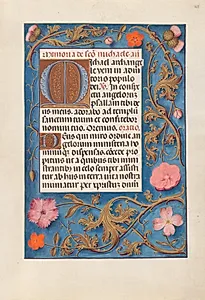 Memoria de sco michaele an
Michael archange
le veni in adiu
torio populo
dei. V. In conspec
tu angelorum
psallam tibi de
us meus. adorabo ad templu
sanctum tuum et confitebor
nomini tuo. Oremus. oratio.
Deus qui miro ordine an
gelorum ministeria ho
minuq dispensas. concede pro
pitius ut a quibus tibi minis
trantibus in celo semper assisti
tur ab his in terra vita nostra
muniatur. per xpristum dnm